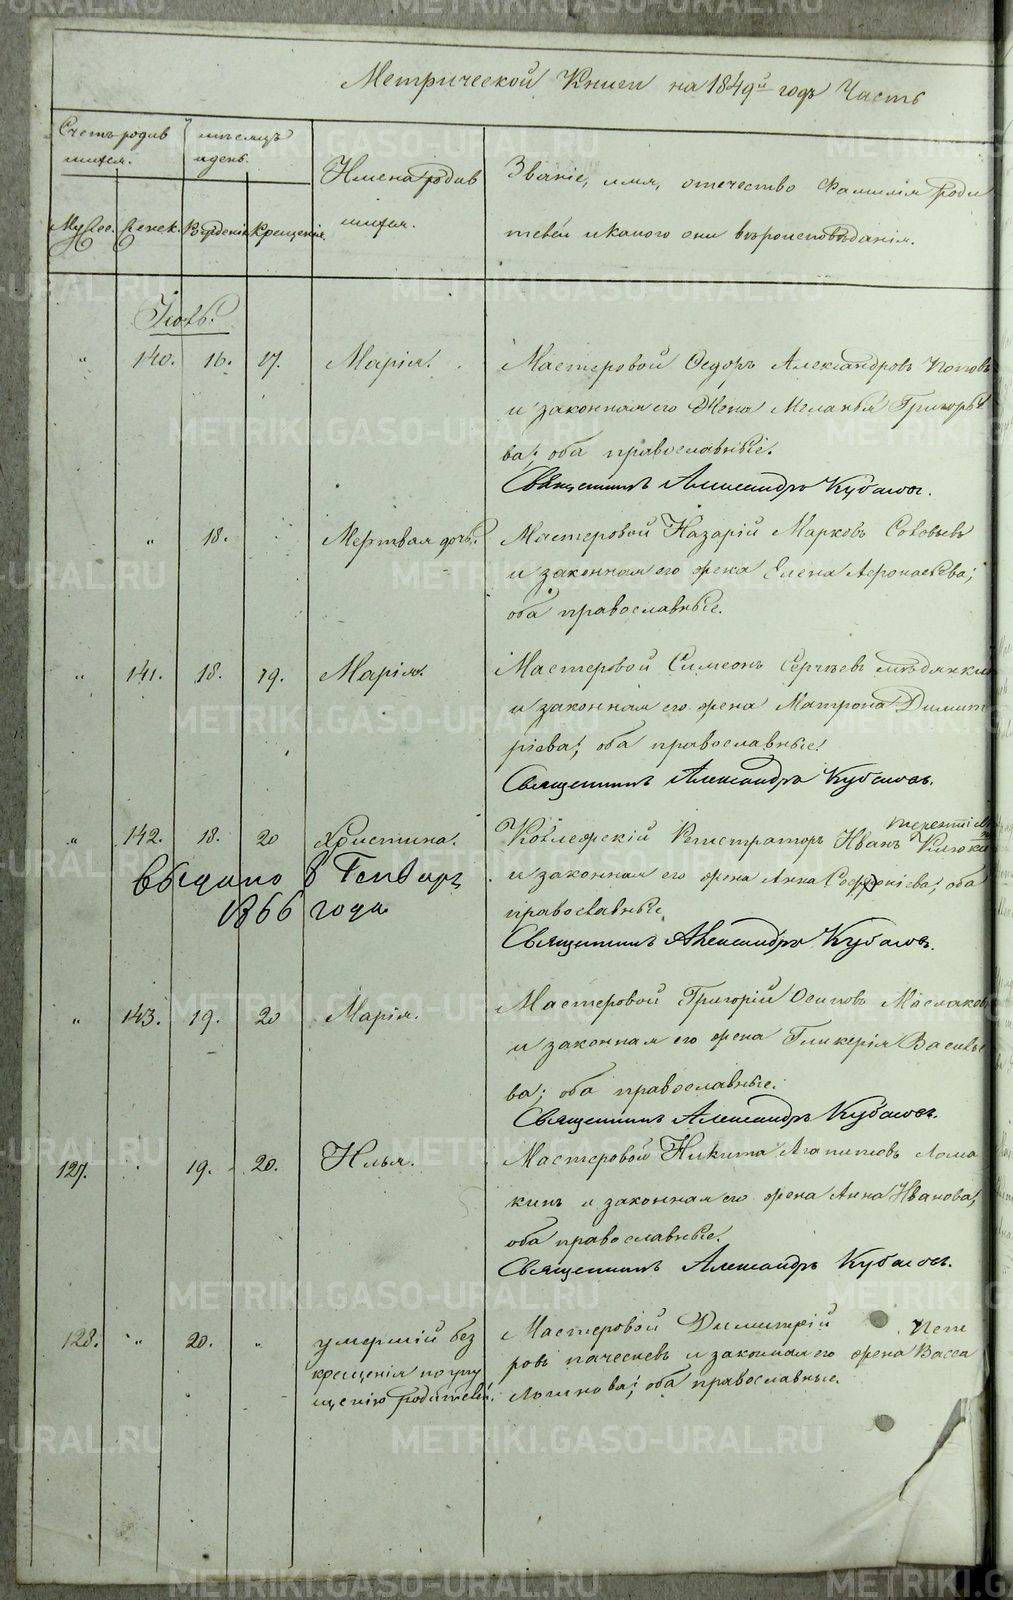 Метрической Книги на 1849й годъ Часть
Счетъ родив
шихся.
мѣсяцъ
и день.
Имена родив
шихся.
Званіе, имя, отечество и фамилія роди
телей и какого они вѣроисповѣданія.
Муж. Женск. Рожденія Крещенія.
Іюль.
" 140. 16. 17. Марія. Мастеровой Ѳедоръ Александровъ Поповъ
и законная его Жена Меланья Григорье
ва; оба православные.
Священникъ Александръ Кубасовъ.
" " 18. Мертвая дочь. Мастеровой Назарій Марковъ Соловьевъ
и законная его жена Елена Аѳонасьева;
оба православные.
" 141. 18. 19. Марія. Мастеровой Симеонъ Сергѣевъ Мѣдянкинъ
и законная его жена Матрона Димит
ріева; оба православные.
Священникъ Александръ Кубасовъ.
" 142. 18. 20 Христина. Коллежскій Регистраторъ Иванъ Терентьевъ
и законная его жена Анна Софроніева; оба
православные.
Священникъ Александръ Кубасовъ.
Выдано 8 Генваря
1866 года
" 143. 19. 20 Марія. Мастеровой Григорій Осиповъ Маслаковъ
и законная его жена Гликерія Василье
ва; оба православные.
Священникъ Александръ Кубасовъ.
127. 19. 20. Илья. Мастеровой Никита Агапитовъ Лома
кинъ и законная его жена Анна Иванова;
оба православные.
Священникъ Александръ Кубасовъ.
128. " 20. " умершій без
крещенія по упу
щенію родителей.
Мастеровой Димитрій Пет
ровъ и законная его жена Васса
Логинова; оба православные.
METRIKI.GASO-URAL.RU